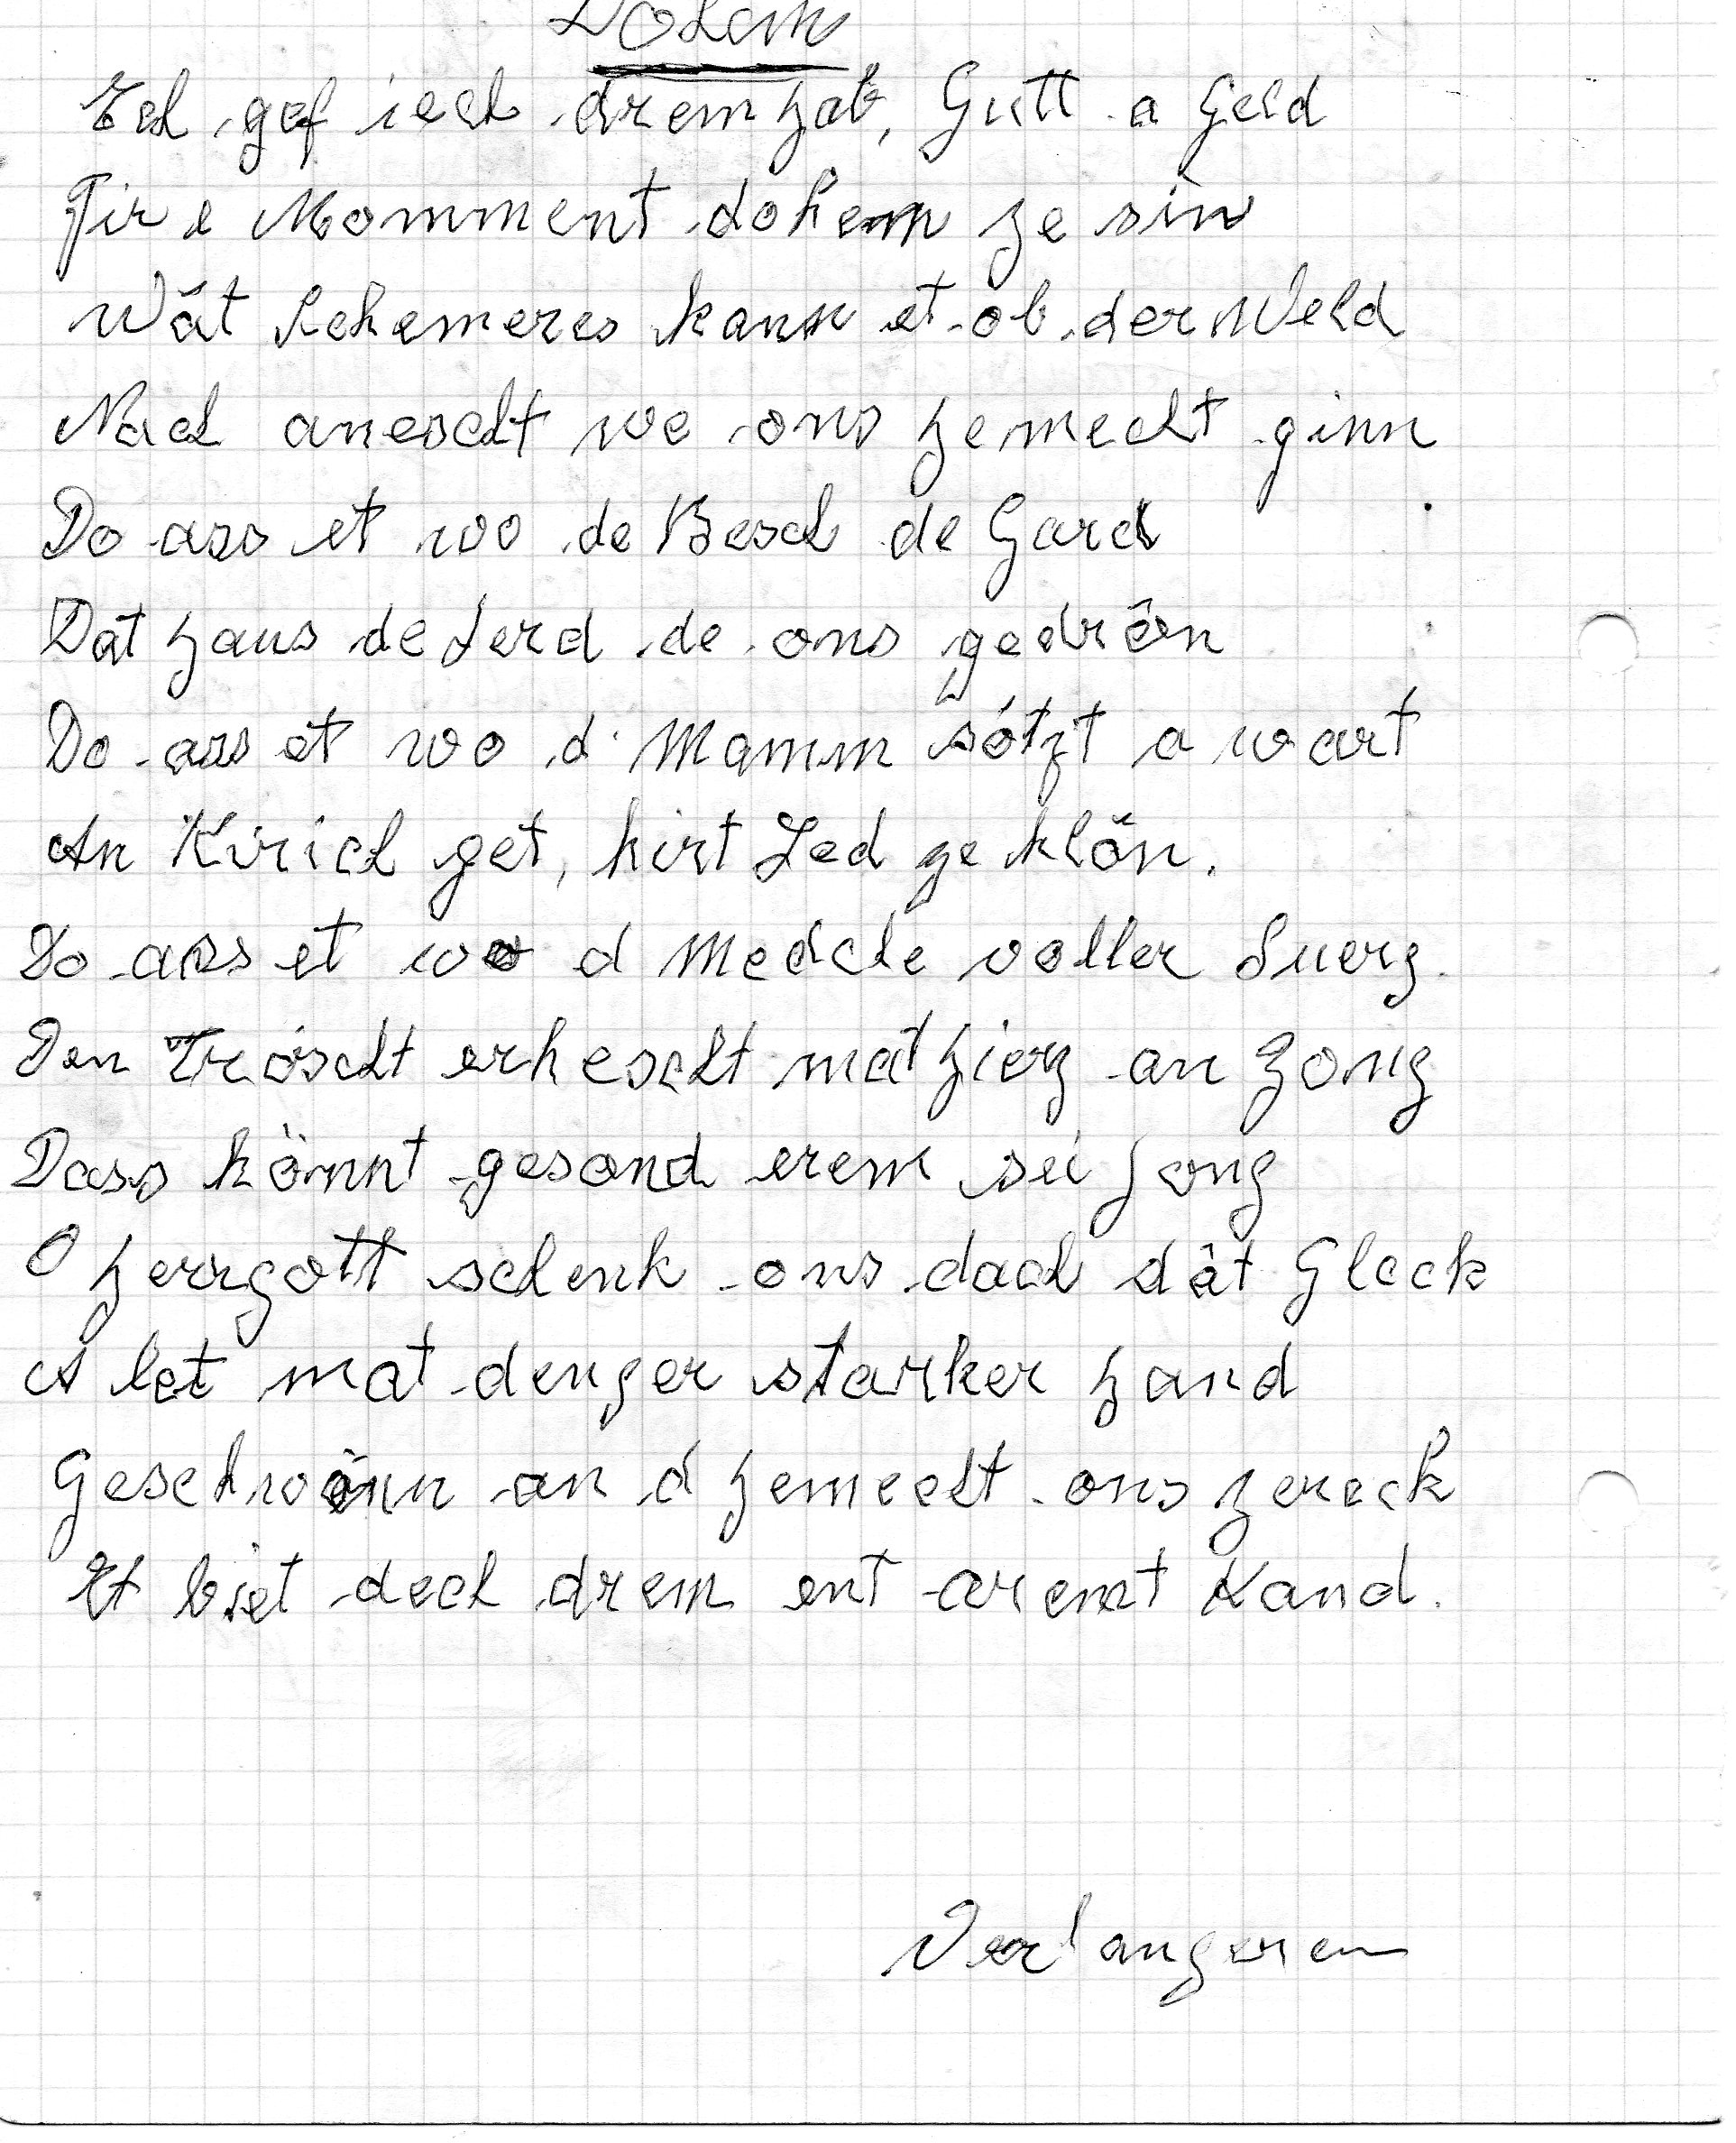 Dohem
Ech gef iech drem Hab, Gutt a Geld
Fir e Momment dohem ze sin
Wât Schemeres kann et ob der Weld
Nach anescht we ons Hemecht ginn
Do ass et wo de Besch de Gard
Dat Haus de Ierd de ons gedrôn
Do ass et wo d' Mamm sótzt a wart
An Kirich get, hirt Led ze klôn.
Do ass et wo d Medche voller Suerg.
Den Tróscht erhescht mat Hierz an Zong
Dass könnt gesond erem sei Jong
O Herrgott schenk ons dach dât Gleck
A let mat denger starker Hand
Geschwönn an d' Hemecht ons zereck
Et biet dech drem ent aremt Kand.
Verlangeren